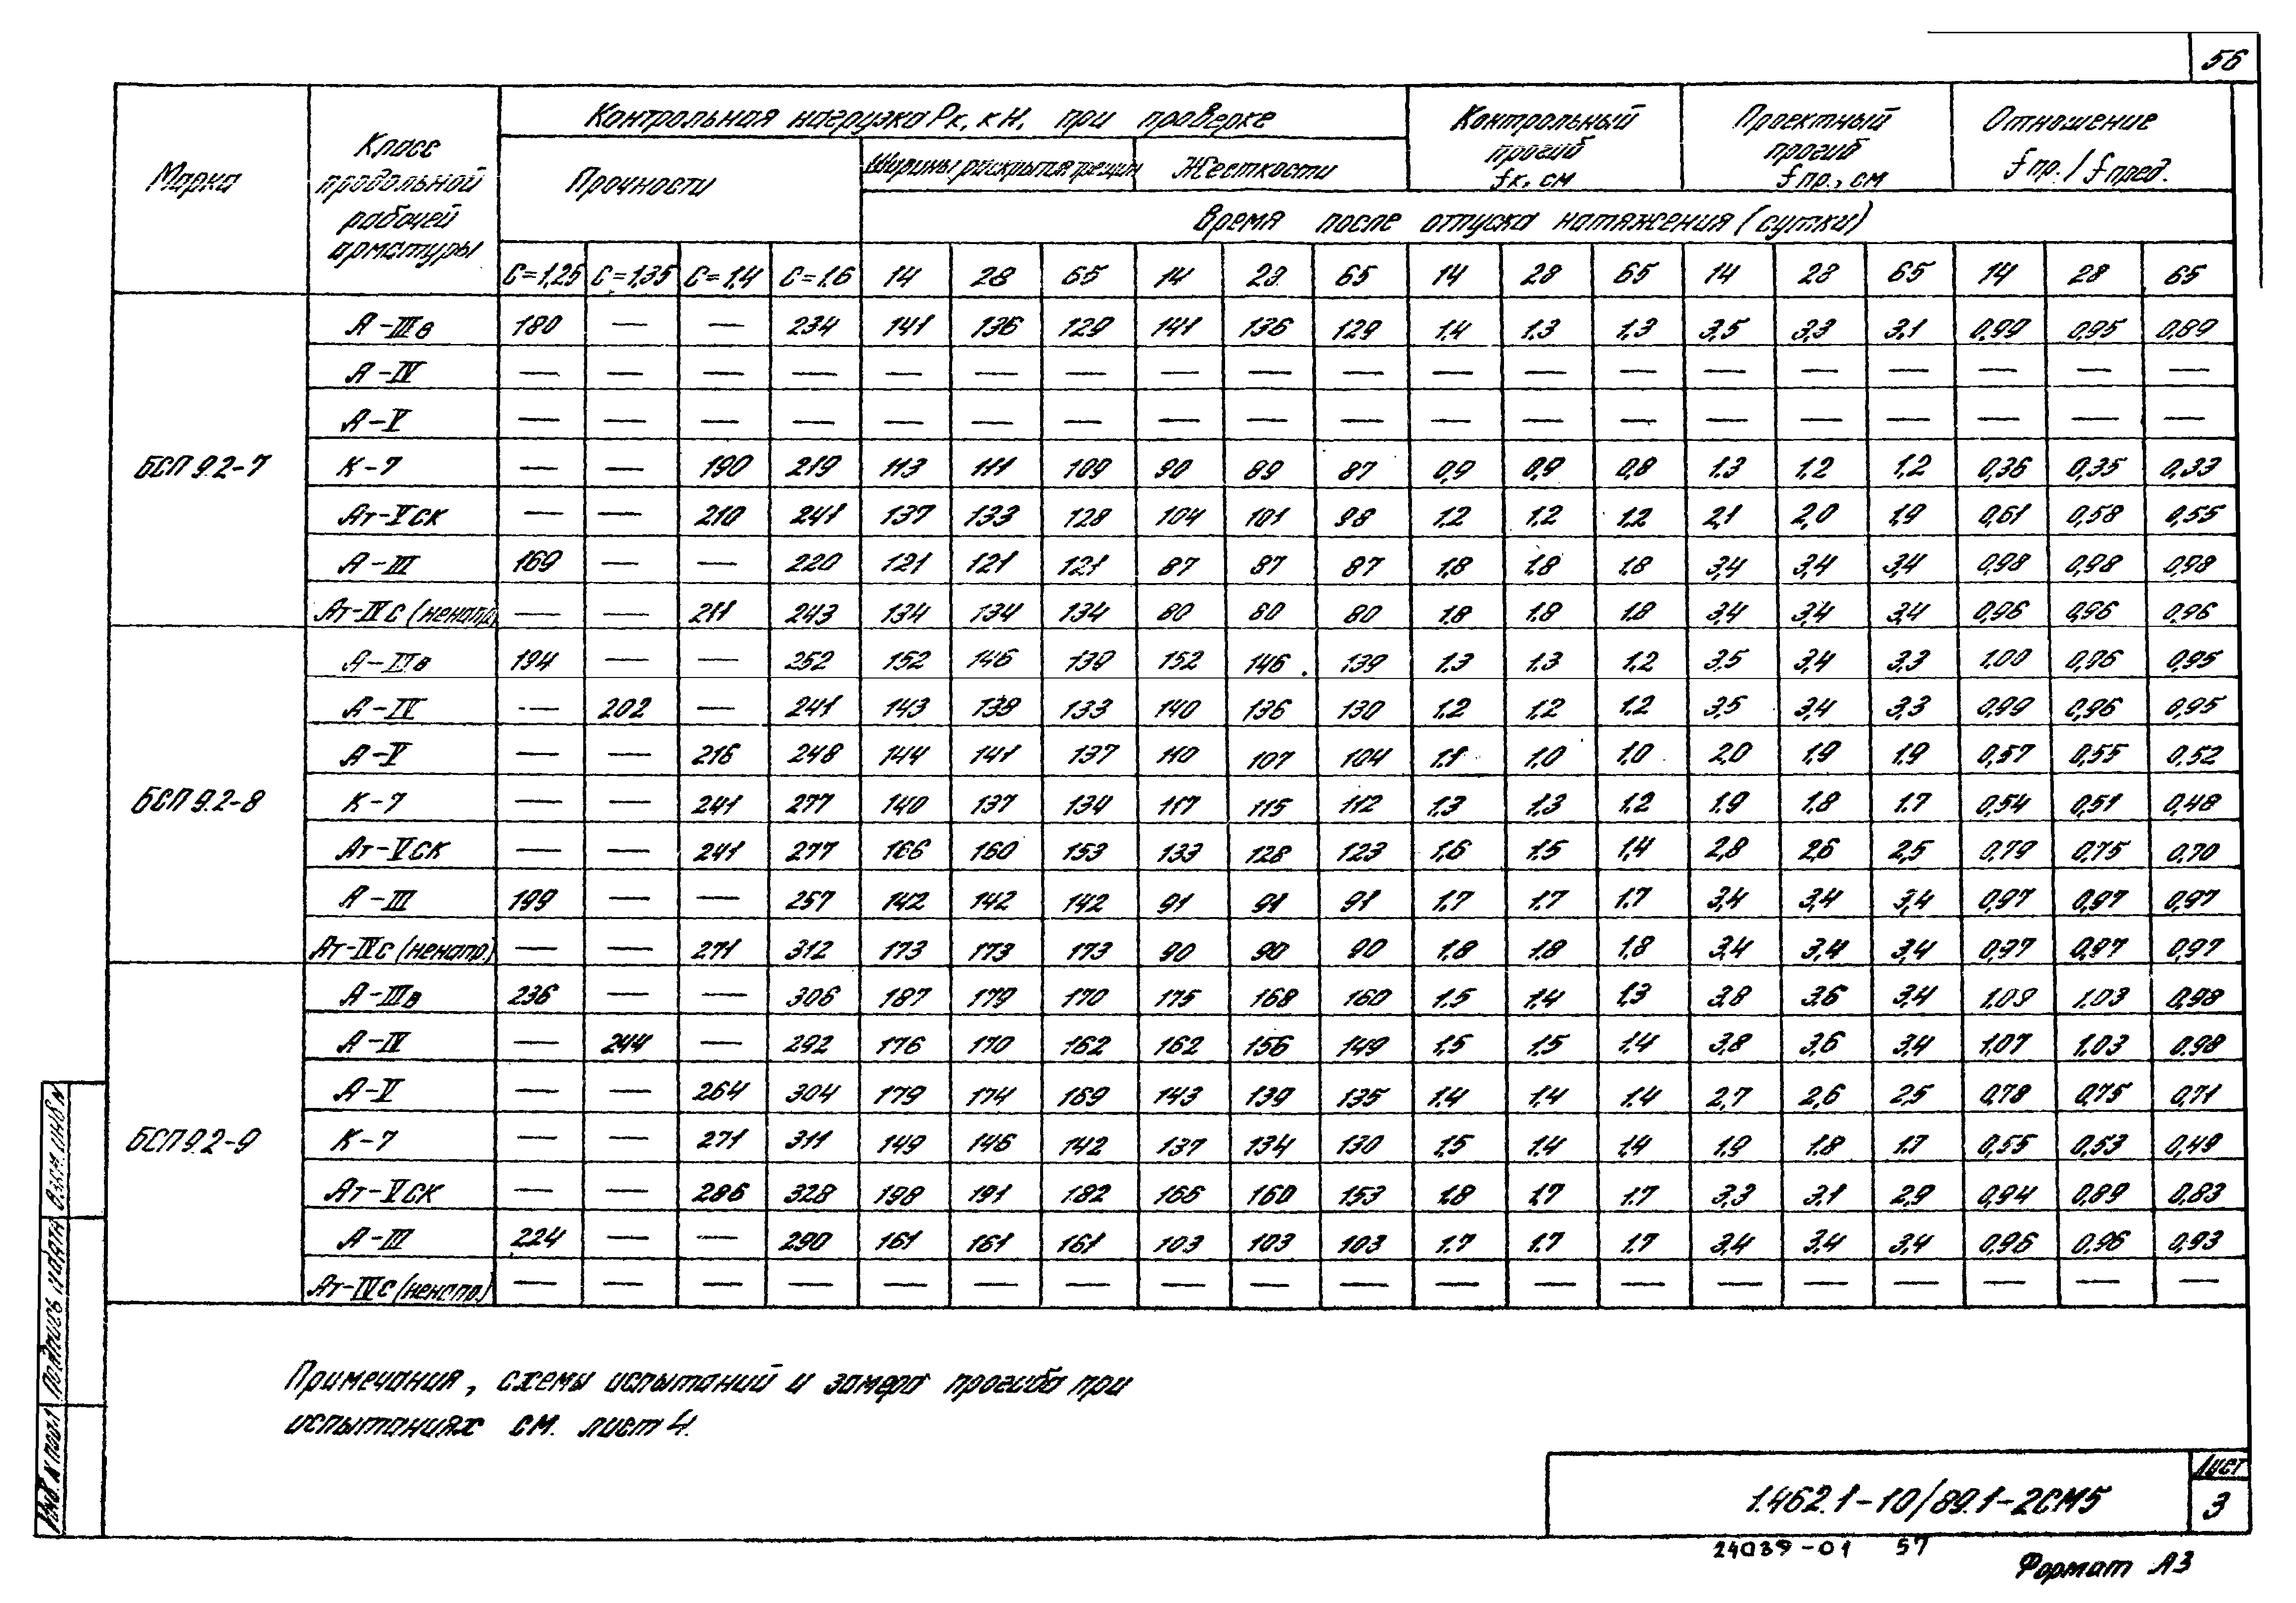 56
Марка
Класс продольной рабочей арматуры
Контрольная нагрузка Рк, кН, при проверке
Контрольный прогиб fк, см
Проектный прогиб fпр., см
Отношение fпр./fпред.
Прочности
Ширины раскрытия трещин
Жесткости
Время после отпуска натяжения (сутки)
С=1,25 С=1,35 С=1,4 С=1,6 14 28 65 14 28 65 14 28 65 14 28 65 14 28 65
БСП 9.2-7
А-IIIв 180 — — 234 141 136 129 141 136 129 1,4 1,3 1,3 3,5 3,3 3,1 0,99 0,95 0,89
А-IV — — — — — — — — — — — — — — — — — — —
А-V — — — — — — — — — — — — — — — — — — —
К-7 — — 190 219 113 111 109 90 89 87 0,9 0,9 0,8 1,3 1,2 1,2 0,36 0,35 0,33
Ат-Vск — — 210 241 137 133 128 104 101 98 1,2 1,2 1,2 2,1 2,0 1,9 0,61 0,58 0,55
А-III 169 — — 220 121 121 121 87 87 87 1,8 1,8 1,8 3,4 3,4 3,4 0,98 0,98 0,98
Ат-IVс (ненапр) — — 211 243 134 134 134 80 80 80 1,8 1,8 1,8 3,4 3,4 3,4 0,96 0,96 0,96
БСП 9.2-8
А-IIIв 194 — — 252 152 146 139 152 146 139 1,3 1,3 1,2 3,5 3,4 3,3 1,00 0,96 0,95
А-IV — 202 — 241 143 138 133 140 136 130 1,2 1,2 1,2 3,5 3,4 3,3 0,99 0,96 0,95
А-V — — 216 248 144 141 137 110 107 104 1,1 1,0 1,0 2,0 1,9 1,9 0,57 0,55 0,52
К-7 — — 241 277 140 137 134 117 115 112 1,3 1,3 1,2 1,9 1,8 1,7 0,54 0,51 0,48
Ат-Vск — — 241 277 166 160 153 133 128 123 1,6 1,5 1,4 2,8 2,6 2,5 0,79 0,75 0,70
А-III 199 — — 257 142 142 142 91 91 91 1,7 1,7 1,7 3,4 3,4 3,4 0,97 0,97 0,97
Ат-IVс (ненапр.) — — 271 312 173 173 173 90 90 90 1,8 1,8 1,8 3,4 3,4 3,4 0,97 0,97 0,97
БСП 9.2-9
А-IIIв 236 — — 306 187 179 170 175 168 160 1,5 1,4 1,3 3,8 3,6 3,4 1,09 1,03 0,98
А-IV — 244 — 292 176 170 162 162 156 149 1,5 1,5 1,4 3,8 3,6 3,4 1,07 1,03 0,98
А-V — — 264 304 179 174 169 143 139 135 1,4 1,4 1,4 2,7 2,6 2,5 0,78 0,75 0,71
К-7 — — 271 311 149 146 142 137 134 130 1,5 1,4 1,4 1,9 1,8 1,7 0,55 0,53 0,49
Ат-Vск — — 286 328 198 191 182 166 160 153 1,8 1,7 1,7 3,3 3,1 2,9 0,94 0,89 0,83
А-III 224 — — 290 161 161 161 103 103 103 1,7 1,7 1,7 3,4 3,4 3,4 0,96 0,96 0,93
Ат-IVс (ненапр.) — — — — — — — — — — — — — — — — — — —
Примечания, схемы испытаний и замера прогиба при
испытаниях см. лист 4.
Инв. N подл. Подпись и дата Взам. инв. N
1.462.1-10/89.1-2СМ5
Лист
3
24039-01 57
Формат А3